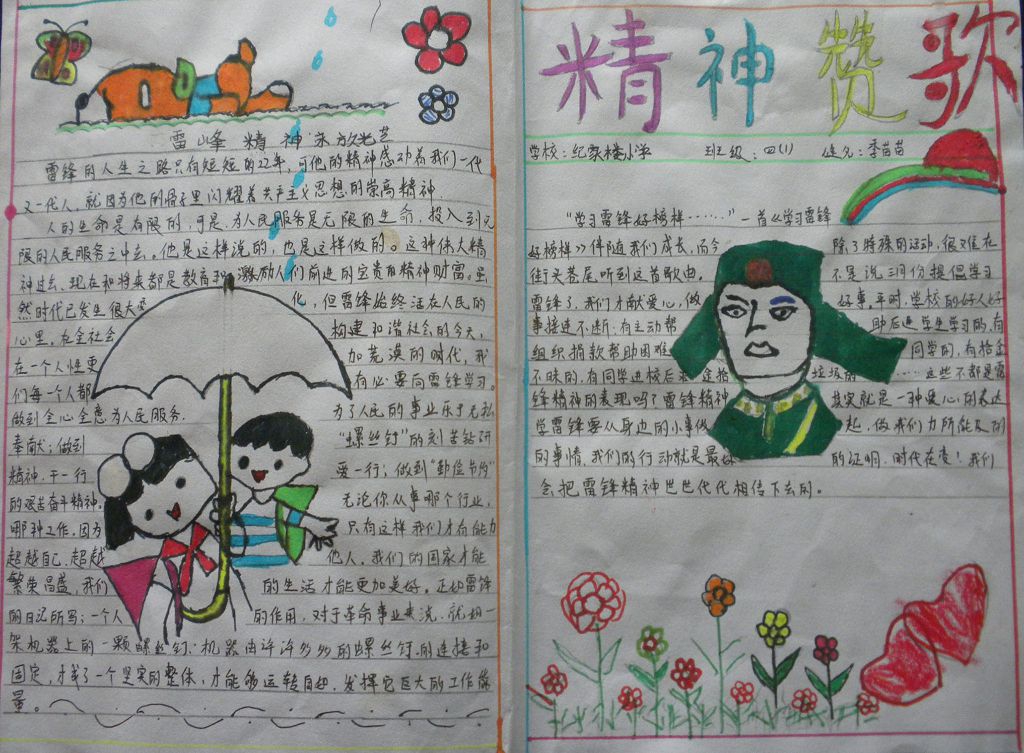 雷峰精神永放光芒
雷锋的人生之路只有短短的22年,可他的精神感动着我们一代
又一代人,就因为他的骨子里闪耀着共产主义思想的崇高精神
人的生命是有限的,可是,为人民服务是无限的生命,投入到无
限的人民服务之中去。他是这样说的,也是这样做的。这种伟大精
神过去、现在和将来都是教育和激励人们前进的宝贵的精神财富。虽
然时代已发生很大变化,但雷锋始终活在人民的
心里。在全社会构建和谐社会的今天,
在一个人性更加荒漠的时代,我
们每一个人都有必要向雷锋学习。
做到全心全意为人民服务.为了人民的事业乐于无私
奉献;做到“螺丝钉”的刻苦钻研
精神,干一行爱一行;做到“勤俭节约”
的艰苦奋斗精神。无论你从事哪个行业,
哪种工作。因为只有这样我们才有能力
超越自己.超越他人.我们的国家才能
繁荣昌盛,我们的生活才能更加美好。正如雷锋
的日记所写:一个人的作用,对于革命事业来说,就如一
架机器上的一颗螺丝钉.机器由许许多多的螺丝钉的连接和
固定,才成了一个坚实的整体,才能够运转自如,发挥它巨大的工作能
量。
精神赞歌
学校:纪家楼小学 班级:四(1) 姓名:季苗苗
“学习雷锋好榜样……”一首《学习雷锋
好榜样》伴随我们成长,而今除了特殊的活动,很难在
街头巷尾听到这首歌曲。不是说三月份提倡学习
雷锋了,我们才献爱心,做好事,平时,学校的好人好
事接连不断:有主动帮助后进学生学习的,有
组织捐款帮助困难同学的,有拾金
不昧的,有同学进校后来捡垃圾的……这些不都是雷
锋精神的表现吗?雷锋精神其实就是一种爱心的表达
学雷锋要从身边的小事做起,做我们力所能及的
的事情,我们的行动就是最好的证明.时代在变!我们
会把雷锋精神世世代代相传下去的。